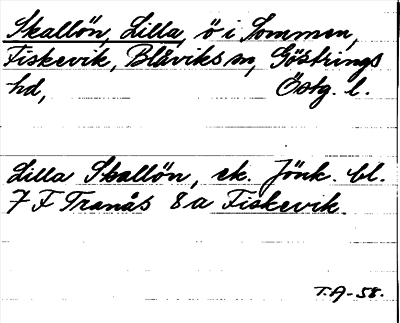 Skallön, Lilla, ö i Sommen,
Fiskevik, Blåviks sn, Göstrings
hd, Östg. l.
Lilla Skallön, ek. Jönk. bl.
7 F Tranås 8 a Fiskevik.
T.A-58.